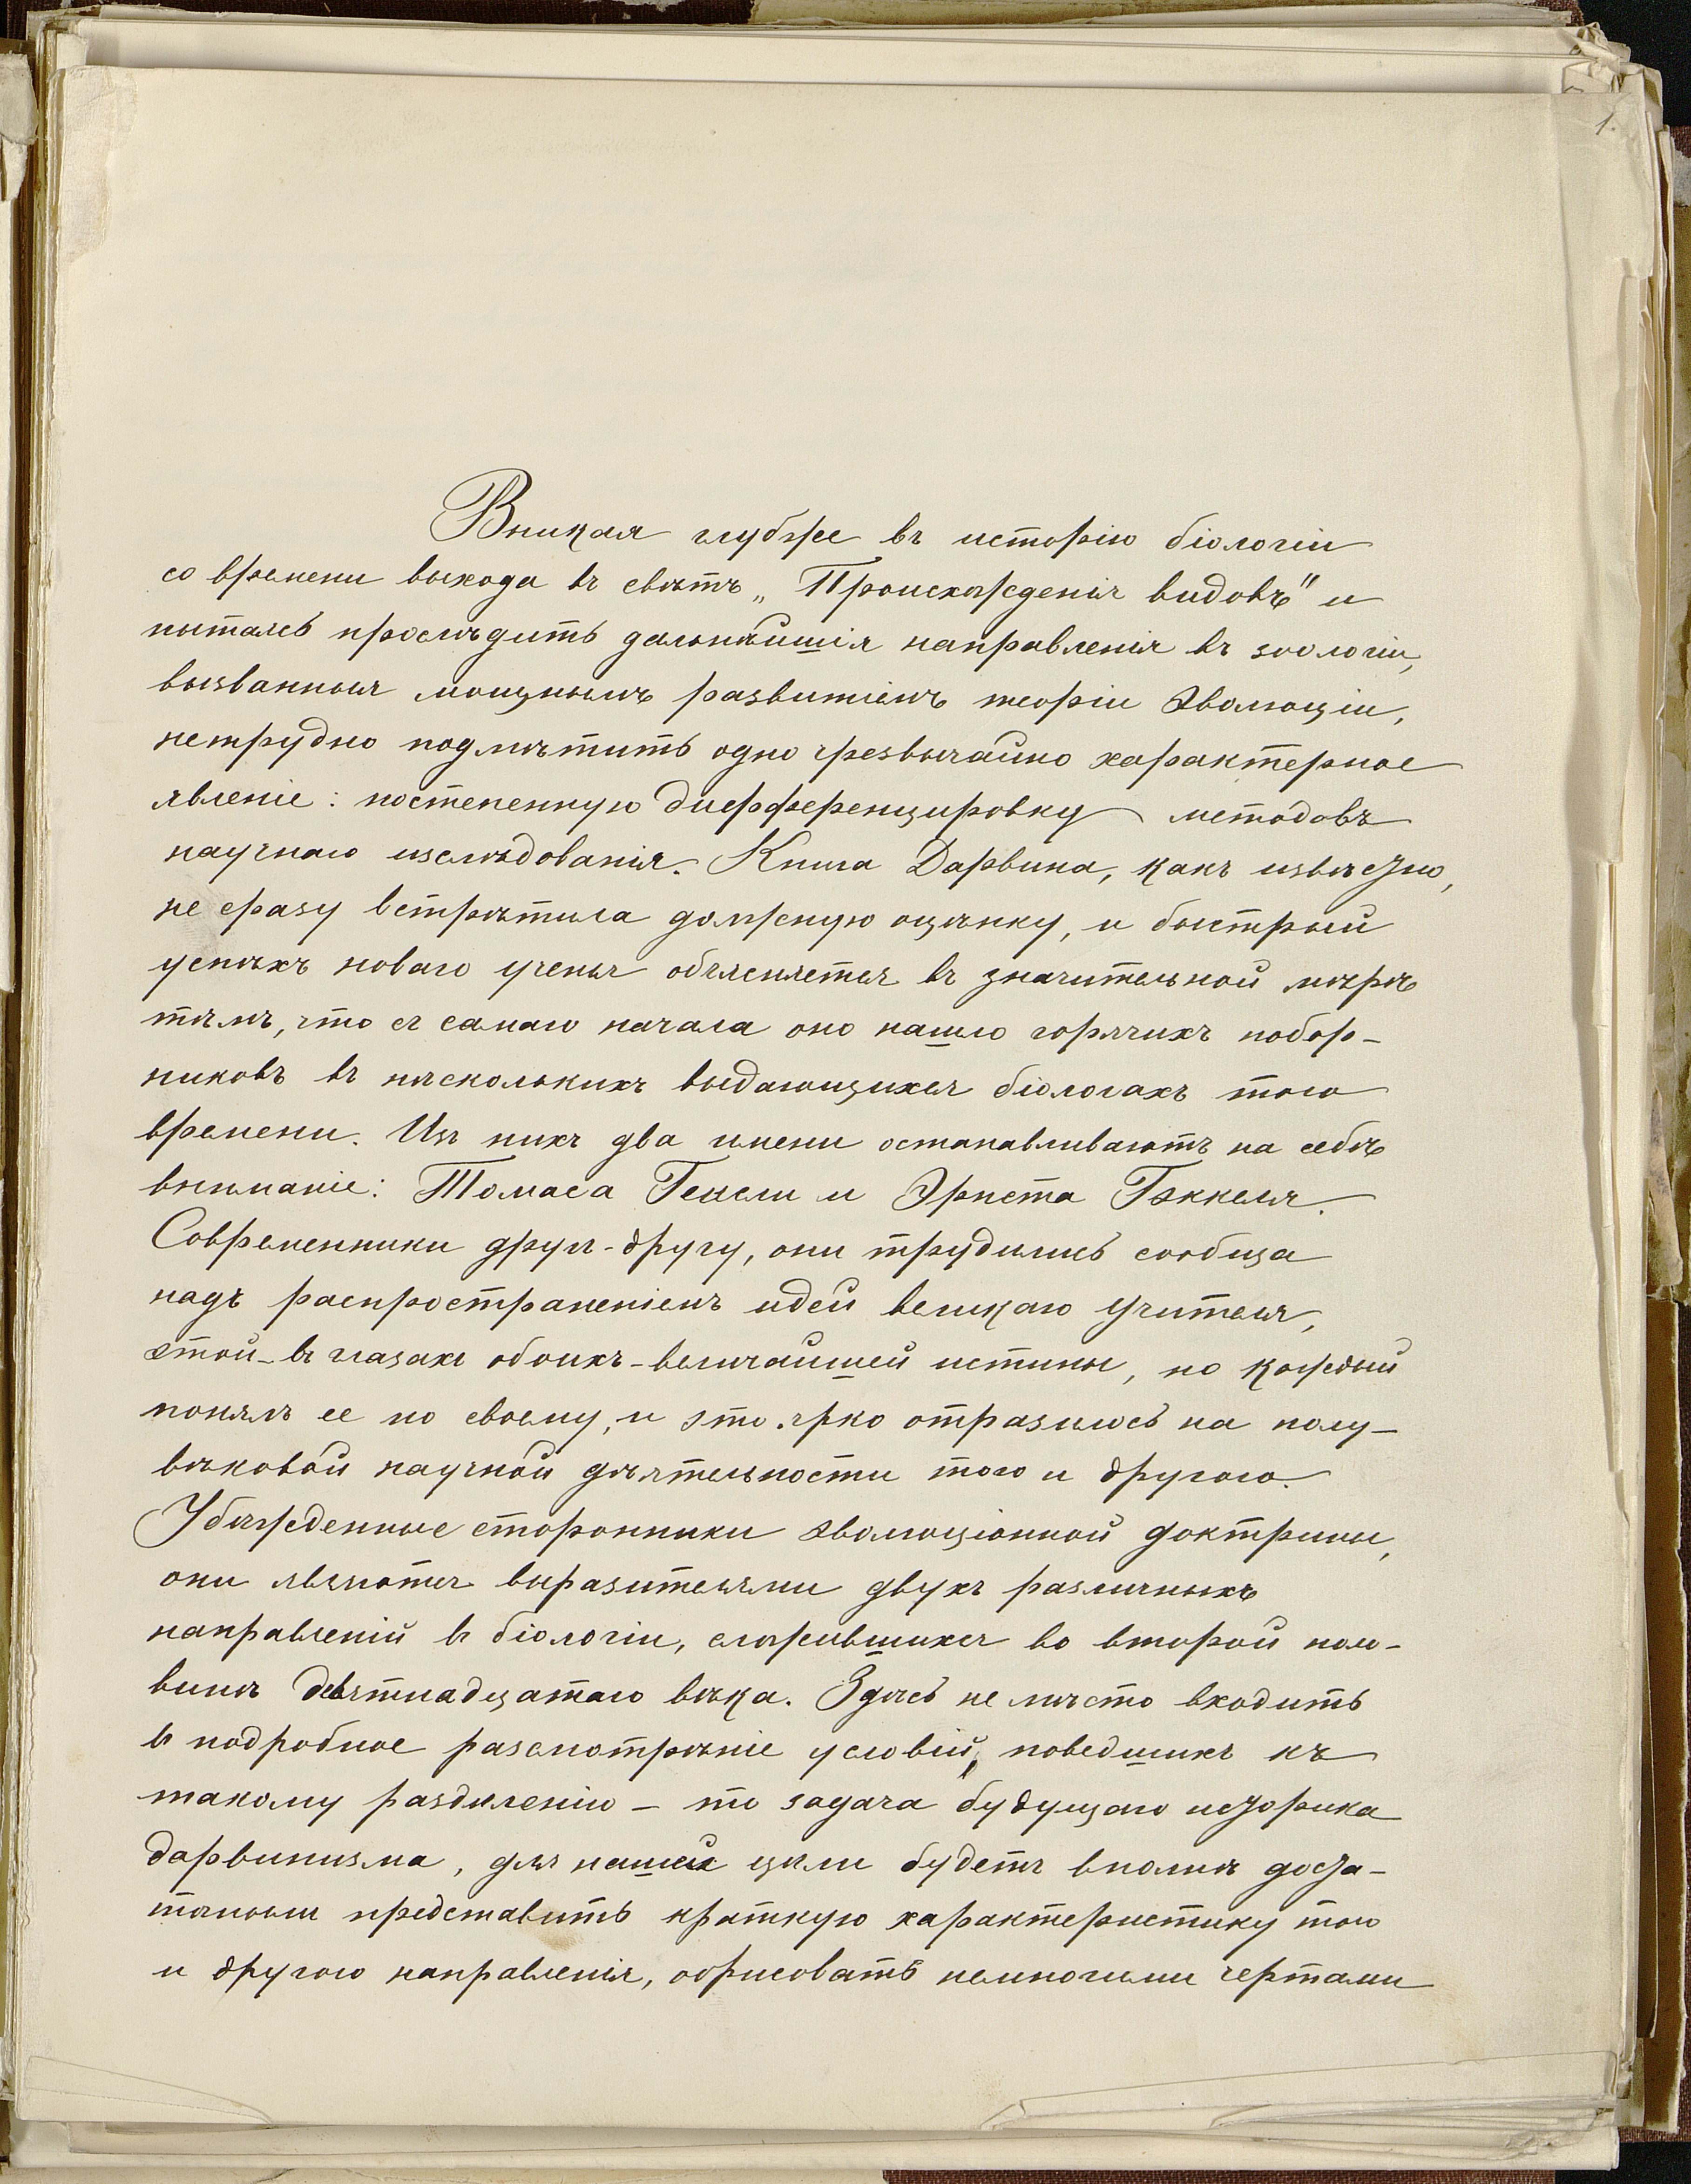 1.
Вникая глубже въ исторію біологіи
со времени выхода въ свѣтъ „Происхожденія видовъ" и
пытаясь прослѣдить дальнѣйшія направленія въ зоологіи,
вызванныя мощнымъ развитіемъ теоріи эволюціи,
нетрудно подмѣтить одно чрезвычайно характерное
явленіе: постепенную дифференцировку методовъ
научнаго изслѣдованія. Книга Дарвина, какъ извѣстно,
не сразу встрѣтила должную оцѣнку, и быстрый
успѣхъ новаго ученія объясняется въ значительной мѣрѣ
тѣмъ, что съ самаго начала оно нашло горячихъ побор-
никовъ въ нѣсколькихъ выдающихся біологахъ того
времени. Изъ нихъ два имени останавливаютъ на себѣ
вниманіе: Томаса Гексли и Эрнста Гэккеля.
Современники другъ-другу, они трудились сообща
надъ распространеніемъ идей великаго учителя,
этой - въ глазахъ обоихъ - величайшей истины, но каждый
понялъ ее по своему, и это ярко отразилось на полу-
вѣковой научной дѣятельности того и другого.
Убѣжденные сторонники эволюціонной доктрины,
они являются выразителями двухъ различныхъ
направленій въ біологіи, сложившихся во второй поло-
винѣ девятнадцатаго вѣка. Здѣсь не мѣсто входить
въ подробное разсмотрѣніе условій, поведшихъ къ
такому раздѣленію - то задача будущаго историка
дарвинизма, для нашей цѣли будетъ вполнѣ доста-
точнымъ представить краткую характеристику того
и другого направленія, обрисовать немногими чертами